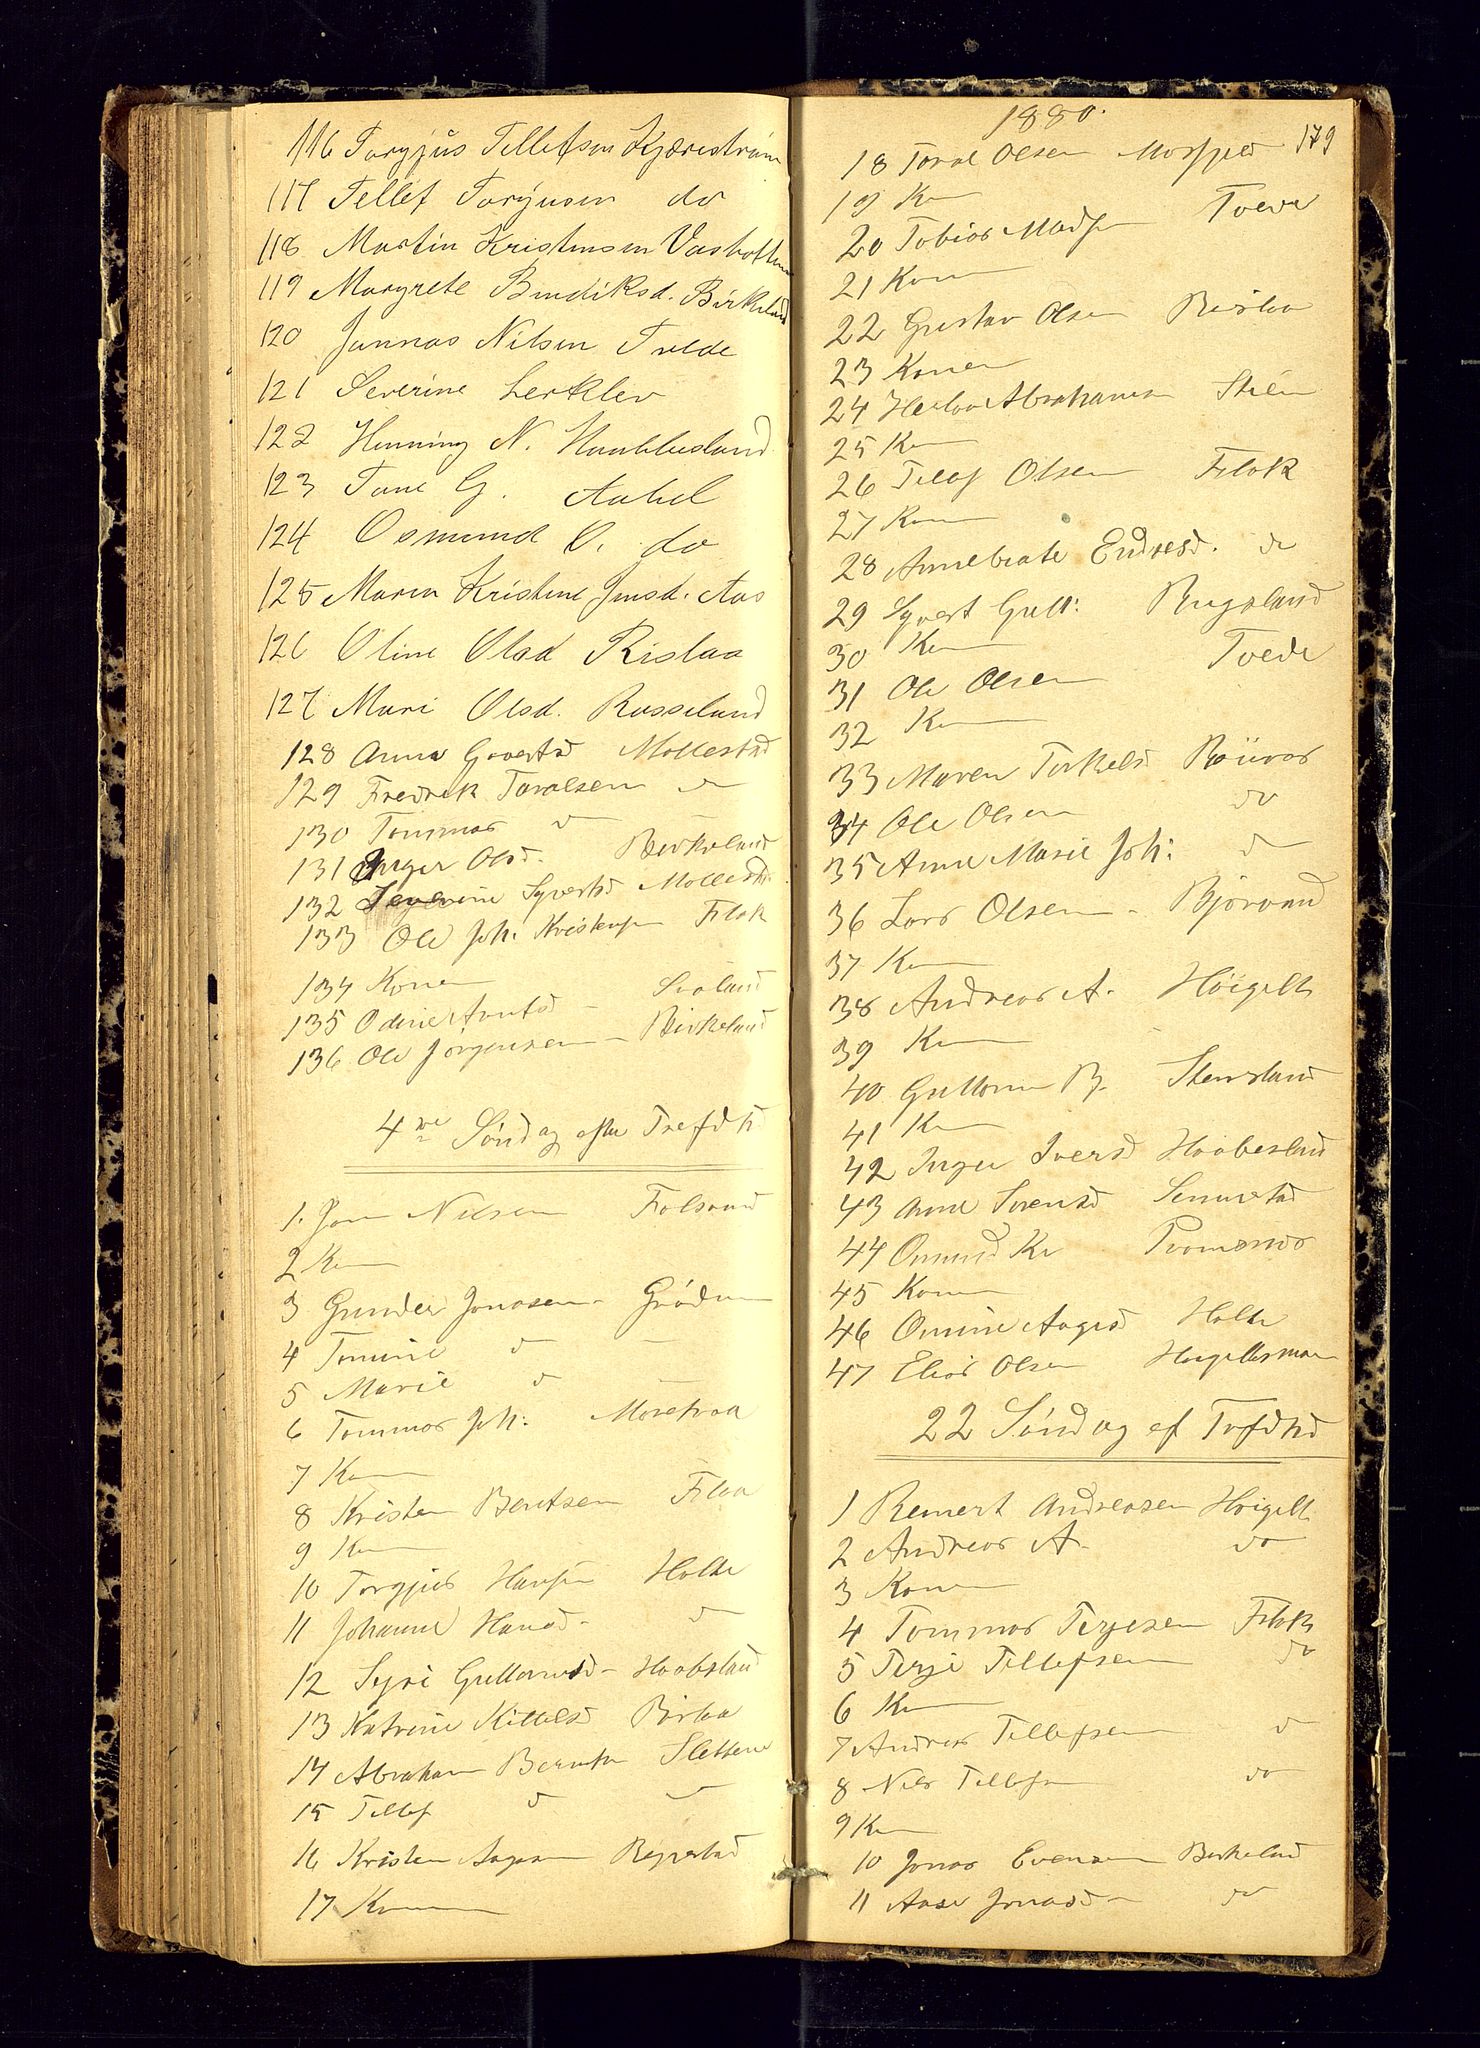 116 Torgjus Tellefsen Kjærestrøm
117 Tellef Torjusen do
118 Martin Kristensen Vashotten
119 Margrete Bendiksd. Birkeland
120 Jonnas Nilsen Tvede
121 Severine Lerklev
122 Henning N. Haabbesland
123 Tone G. Aabel
124 Osmund O. do
125 Maren Kristine Jensd. Aas
126 Oline Olsd Rislaa
127 Mari Olsd. Rosseland
128 Anna Govertsd Mollestad
129 Fredrik Taralsen do
130 Tommas do
131 Inger Olsd. Birkeland
132 Severine Syvertsd Mollestad
133 Ole Joh. Kristensen Flak
134 Konen
135 Odine Arntsd - Svaland
136 Ole Jørgensen - Birkeland
4de Søndag efter Trefdhd
1. Jon Nilsen Folsvand
2 Kon
3 Gunder Jonasen - Grødum
4 Tomine do -
5 Marie do
6 Tommas Joh. Moretraa
7 Kon
8 Kristen Bentsen Flaa
9 Kon
10 Torgjus Hansen Holte
11 Johanne Hansd - do
12 Syri Guttormsd - Haabesland
13 Katrine Kittelsd Risla
14 Abraham Berntsen Slettene
15 Tellef do
16 Kristen Aagesen Repstad
17 Konen
1880.
179
18 Taral Olsen Mosfjeld
19 Kon
20 Tobias Madsen Tvede
21 Konen
22 Gustav Olsen Rislaa
23 Konen
24 Abrahamsen Steen
25 Kon
26 Tellef Olsen Flak
27 Kon
28 Annebeate Endresd. do
29 Syvert Gutt: Rugsland
30 Kon
31 Ole Olsen Tvede
32 Kon
33 Maren Terkelsd Røinaas
34 Ole Olsen do
35 Anne Marie Joh: do
36 Lars Olsen - Bjorvand
37 Kon
38 Andreas A. Høigilt
39 Kon
40 Guttorm B. Stensland
41 Kon
42 Inger Iversd Haabesland
43 Anne Sørensd Senumstad
44 Omund Kr
45 Konen
46 Omine Aagesd Holte
47 Elias Olsen Høigiltsmoen
22 Søndag ef Trefdhd
1 Reinert Andreasen Høigilt
2 Andreas A. do
3 Konen
4 Tommas Terjesen Flak
5 Terje Tellefsen do
6 Kon
7 Andreas Tellefsen do
8 Nils Tellefsen do
9 Kon
10 Jonas Evensen Birkeland
11 Aase Jonasd - do